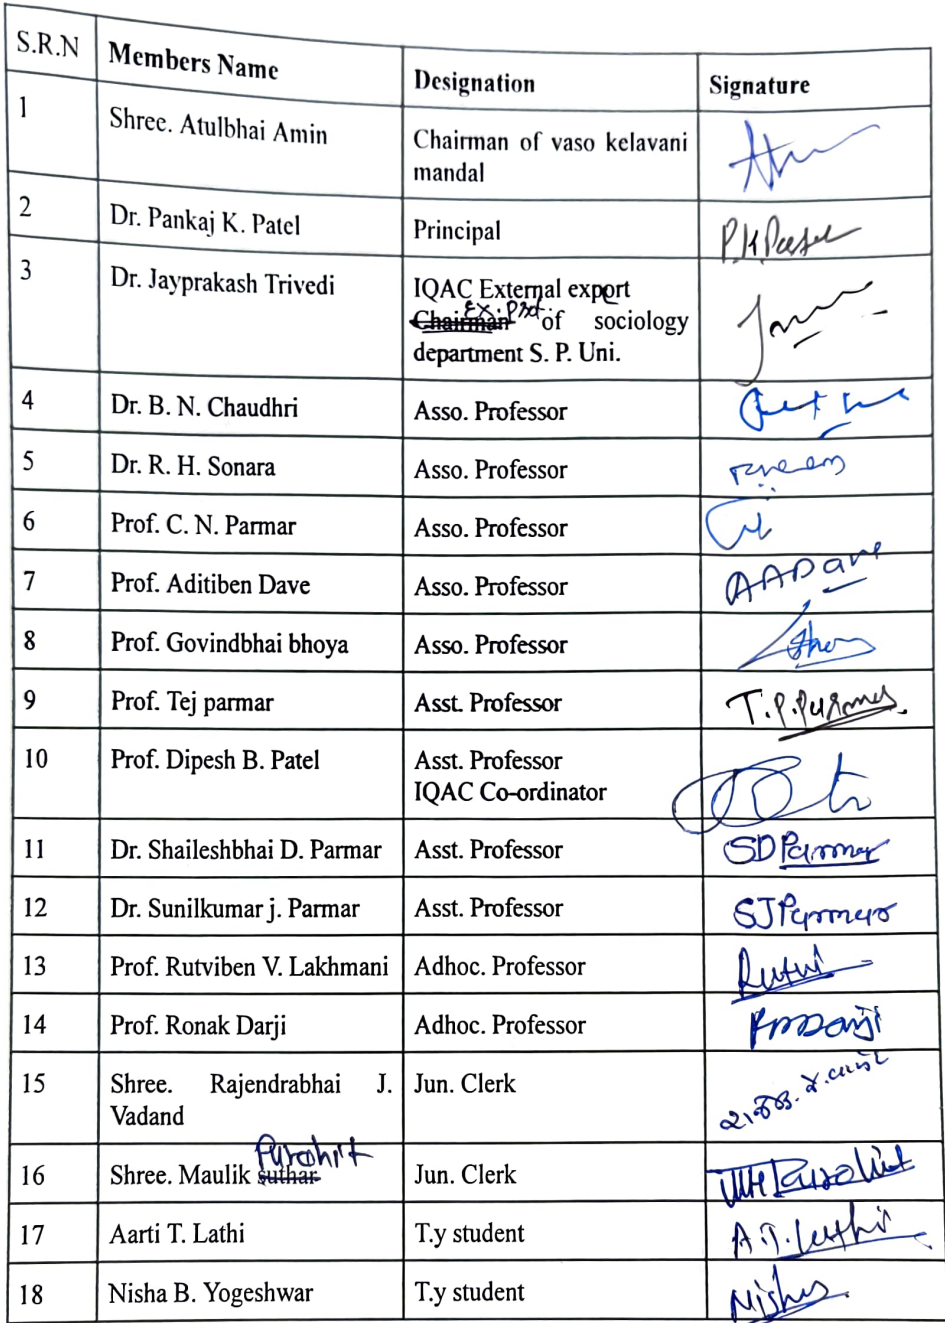 S.R.N Members Name Designation Signature
1 Shree. Atulbhai Amin Chairman of vaso kelavani
mandal
2 Dr. Pankaj K. Patel Principal P.K.Patel
3 Dr. Jayprakash Trivedi IQAC External expert
Chairman Ex. Prof. of sociology
department S. P. Uni.
4 Dr. B. N. Chaudhri Asso. Professor
5 Dr. R. H. Sonara Asso. Professor
6 Prof. C. N. Parmar Asso. Professor
7 Prof. Aditiben Dave Asso. Professor AADave
8 Prof. Govindbhai bhoya Asso. Professor
9 Prof. Tej parmar Asst. Professor T.P.Parmar.
10 Prof. Dipesh B. Patel Asst. Professor
IQAC Co-ordinator
11 Dr. Shaileshbhai D. Parmar Asst. Professor SDParmar
12 Dr. Sunilkumar j. Parmar Asst. Professor SJParmar
13 Prof. Rutviben V. Lakhmani Adhoc. Professor Rutvi
14 Prof. Ronak Darji Adhoc. Professor
15 Shree. Rajendrabhai J. Jun. Clerk
Vadand
Purohit
16 Shree. Maulik suthar Jun. Clerk
17 Aarti T. Lathi T.y student A.T.Lathi
18 Nisha B. Yogeshwar T.y student Nisha